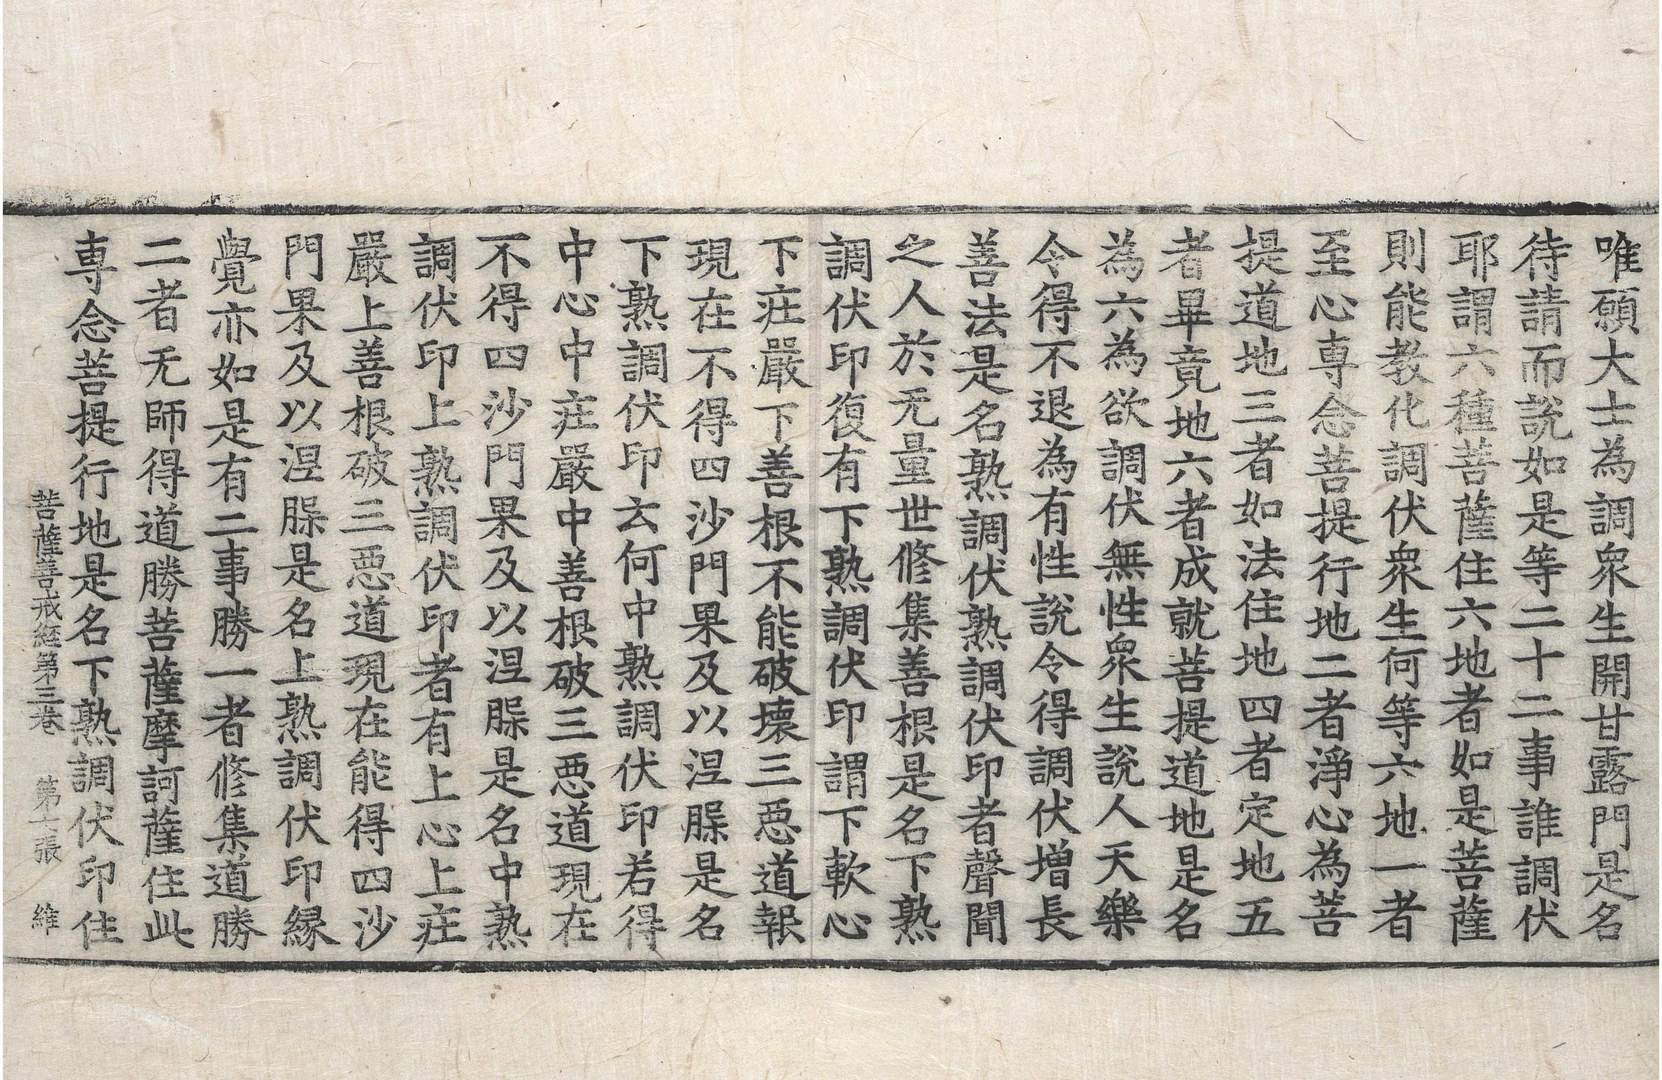 唯願大士為調衆生開甘露門是名
待請而說如是等二十二事誰調伏
耶謂六種菩薩住六地者如是菩薩
則能教化調伏衆生何等六地一者
至心専念菩提行地二者淨心為菩
提道地三者如法住地四者定地五
者畢竟地六者成就菩提道地是名
為六為欲調伏無性衆生說人天樂
令得不退為有性說令得調伏增長
善法是名熟調伏熟調伏印者聲聞
之人於无量世修集善根是名下熟
調伏印復有下熟調伏印謂下軟心
下庄嚴下善根不能破壞三惡道報
現在不得四沙門果及以涅槃是名
下熟調伏印云何中熟調伏印若得
中心中庄嚴中善根破三惡道現在
不得四沙門果及以涅槃是名中熟
調伏印上熟調伏印者有上心上庄
嚴上善根破三惡道現在能得四沙
門果及以涅槃是名上熟調伏印縁
覺亦如是有二事勝一者修集道勝
二者无師得道勝菩薩摩訶薩住此
専念菩提行地是名下熟調伏印住
菩薩善戒經第三卷 第十張 維